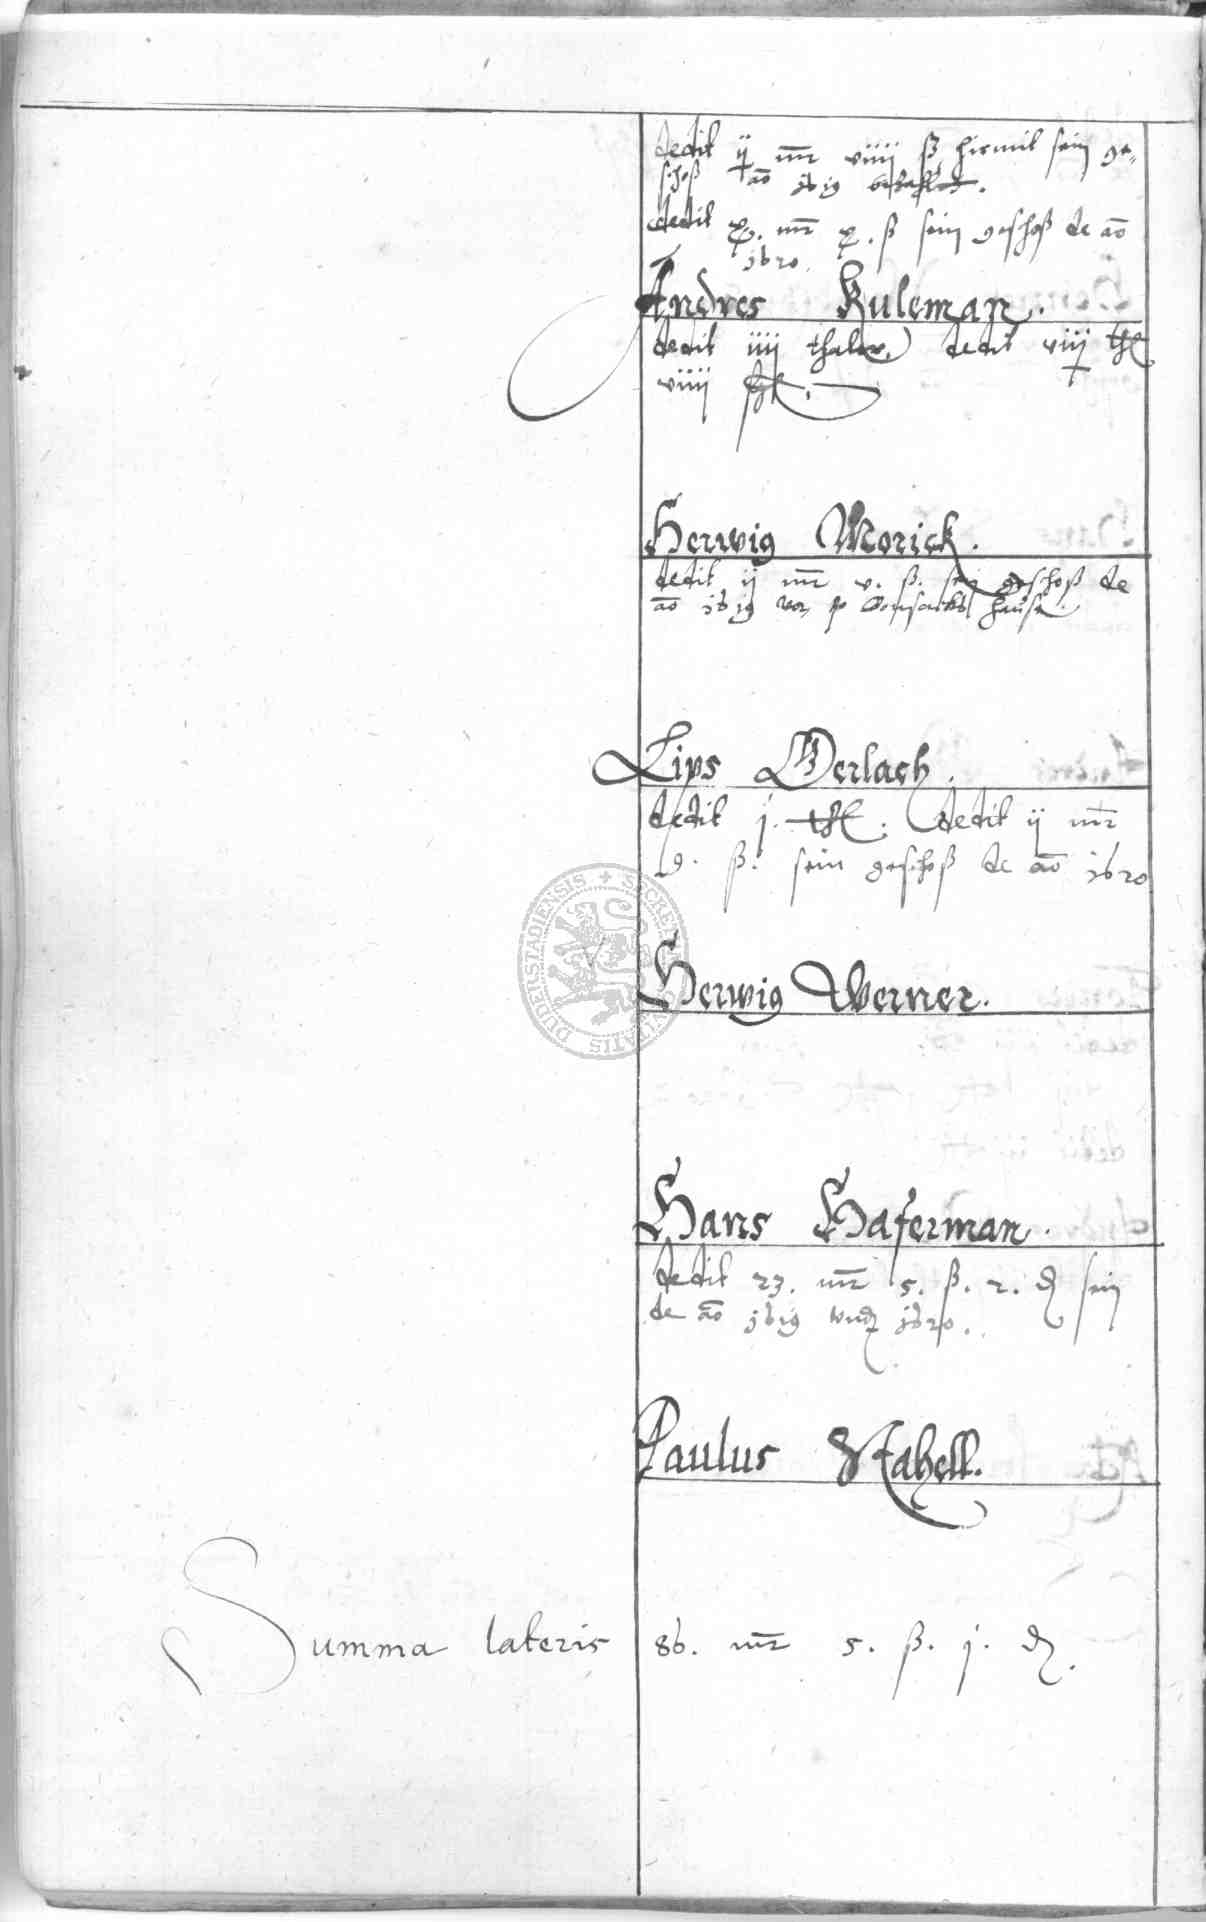 dedit ij mr viiij ß hirmit sein ge-
schoß ao 1619 bezaltt.
dedit mr ß sein geschoß de ao
1620
Andres Kuleman.
dedit iiij thaler, dedit viij thl
viiij ßl.
Herwig Morick.
dedit ij mr v. ß. sein geschoß de
ao 1619 von hause.
Lips Gerlach.
dedit j. thl. dedit ij mr
9. ß. sein geschoß de ao 1620
SECRET CIVITATIS DUDERSTADIENSIS
Herwig Werner.
Hans Haferman.
dedit 23. mr 5. ß. 2. d sein
de ao 1619 undt 1620.
Paulus Nahell.
Summa lateris 86. mr 5. ß. j. d.